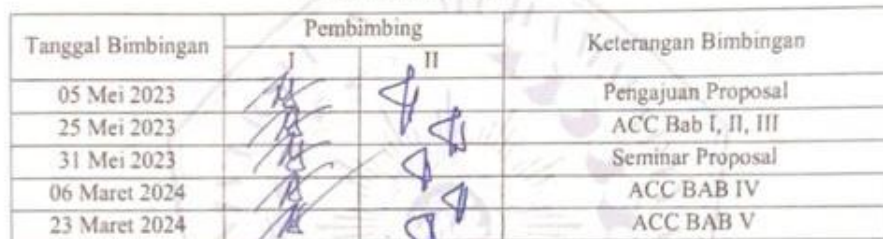 Tanggal Bimbingan Pembimbing Keterangan Bimbingan
I II
05 Mei 2023 Pengajuan Proposal
25 Mei 2023 ACC Bab I, II, III
31 Mei 2023 Seminar Proposal
06 Maret 2024 ACC BAB IV
23 Maret 2024 ACC BAB V